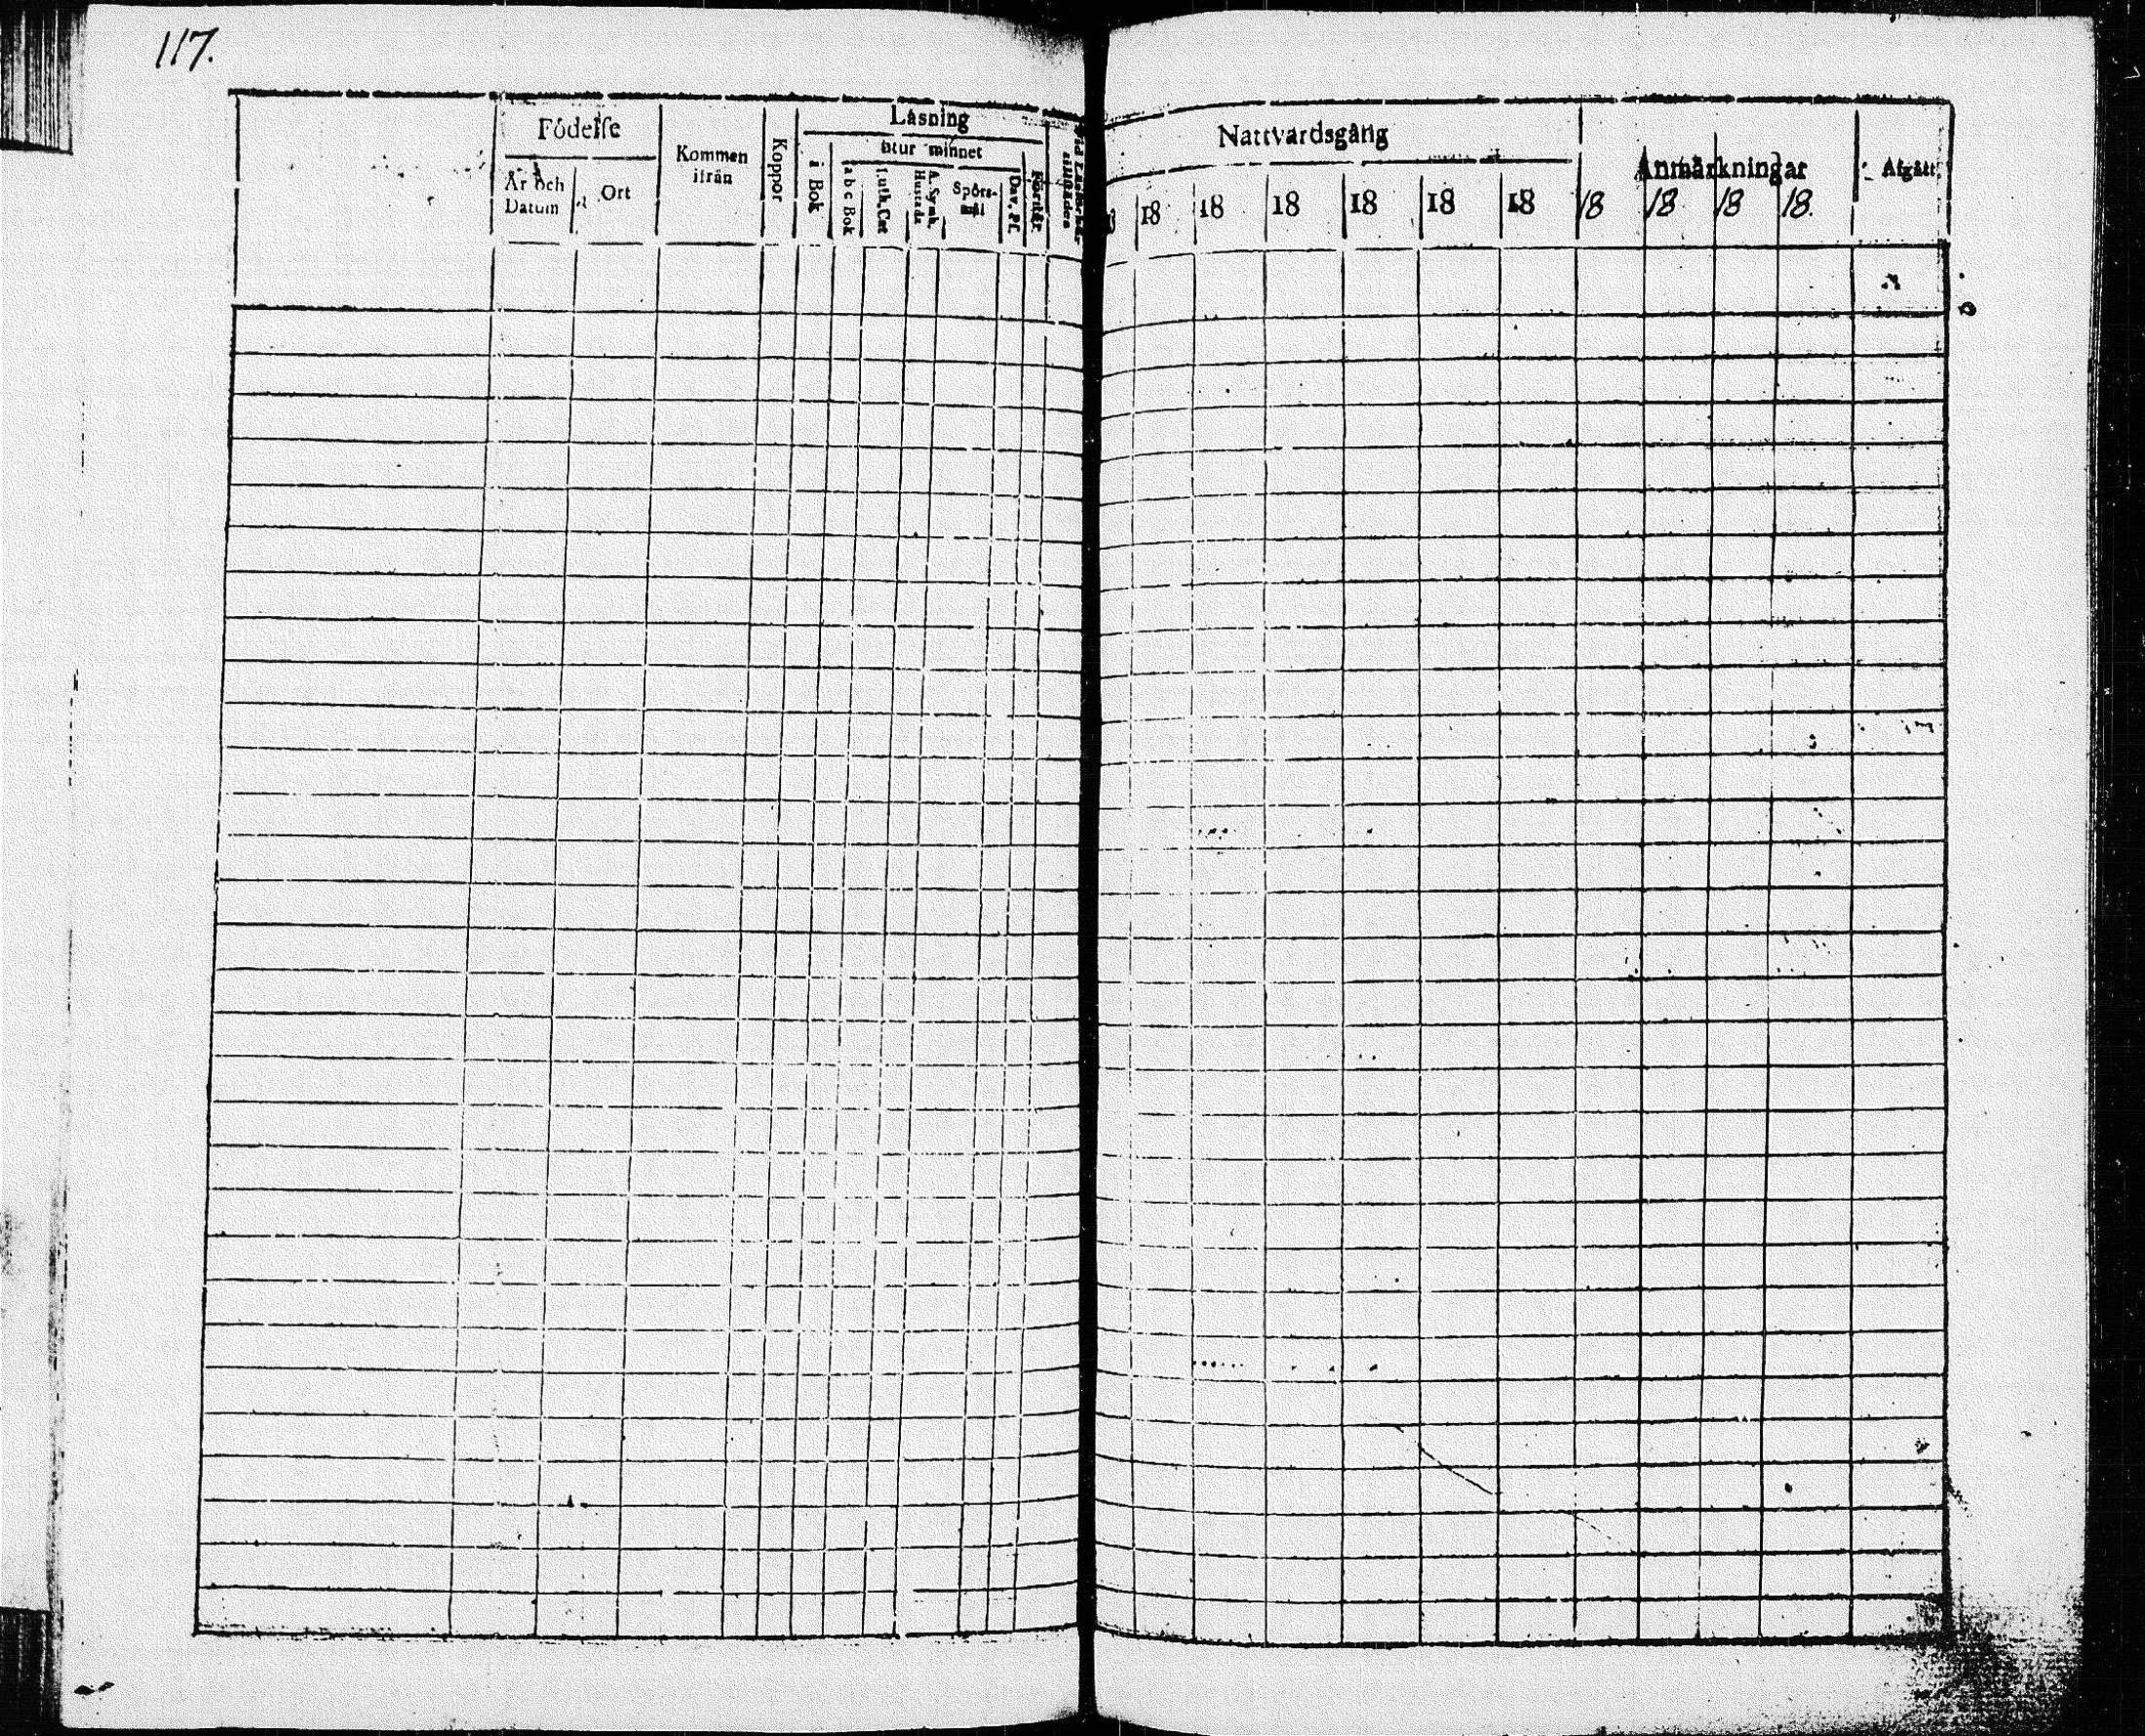 117.
Födelse
Läsning
Nattvardsgång
utur minnet
Kommen
ifrån
Koppor
i Bok
Anmärkningar
Afgått
År och
Datum
Ort
a b c Bok
Luth. Cat
A. Symb.
Hustafla
Spörs-
mål
Dav. Ps.
Förstår
18 18 18 18 18 18 18 18 18 18.